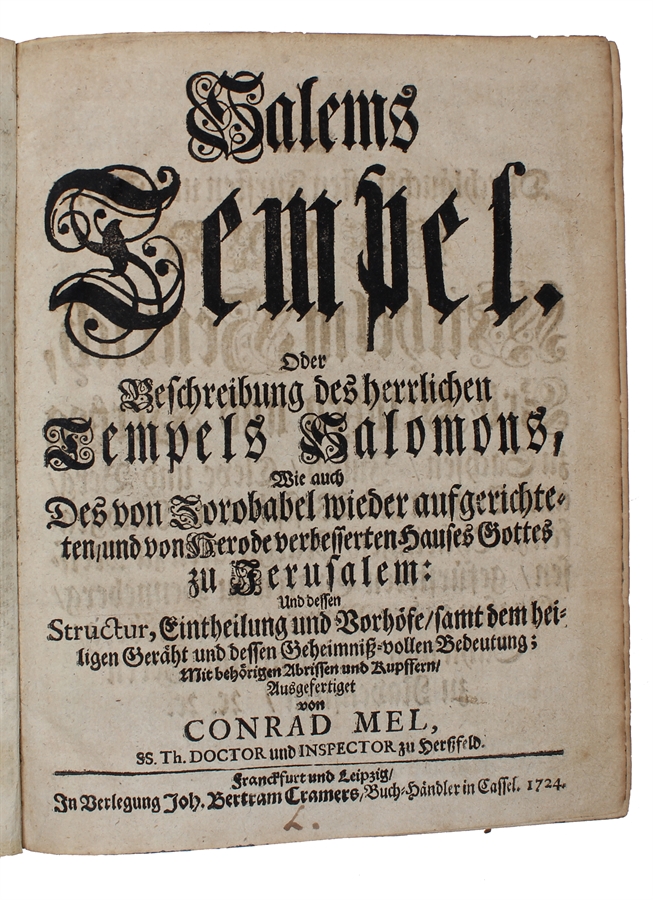 Salems
Tempel.
Oder
Beschreibung des herrlichen
Tempels Salomons,
Wie auch
Des von Zorobabel wieder aufgerichte-
ten/und von Herode verbesserten Hauses Gottes
zu Jerusalem:
Und dessen
Structur, Eintheilung und Vorhöfe/samt dem hei-
ligen Geräht und dessen Geheimniß-vollen Bedeutung;
Mit behörigen Abrissen und Kupffern/
Ausgefertiget
von
CONRAD MEL,
SS. Th. DOCTOR und INSPECTOR zu Herßfeld.
Franckfurt und Leipzig/
In Verlegung Joh. Bertram Cramers/Buch-Händler in Cassel. 1724.
L.